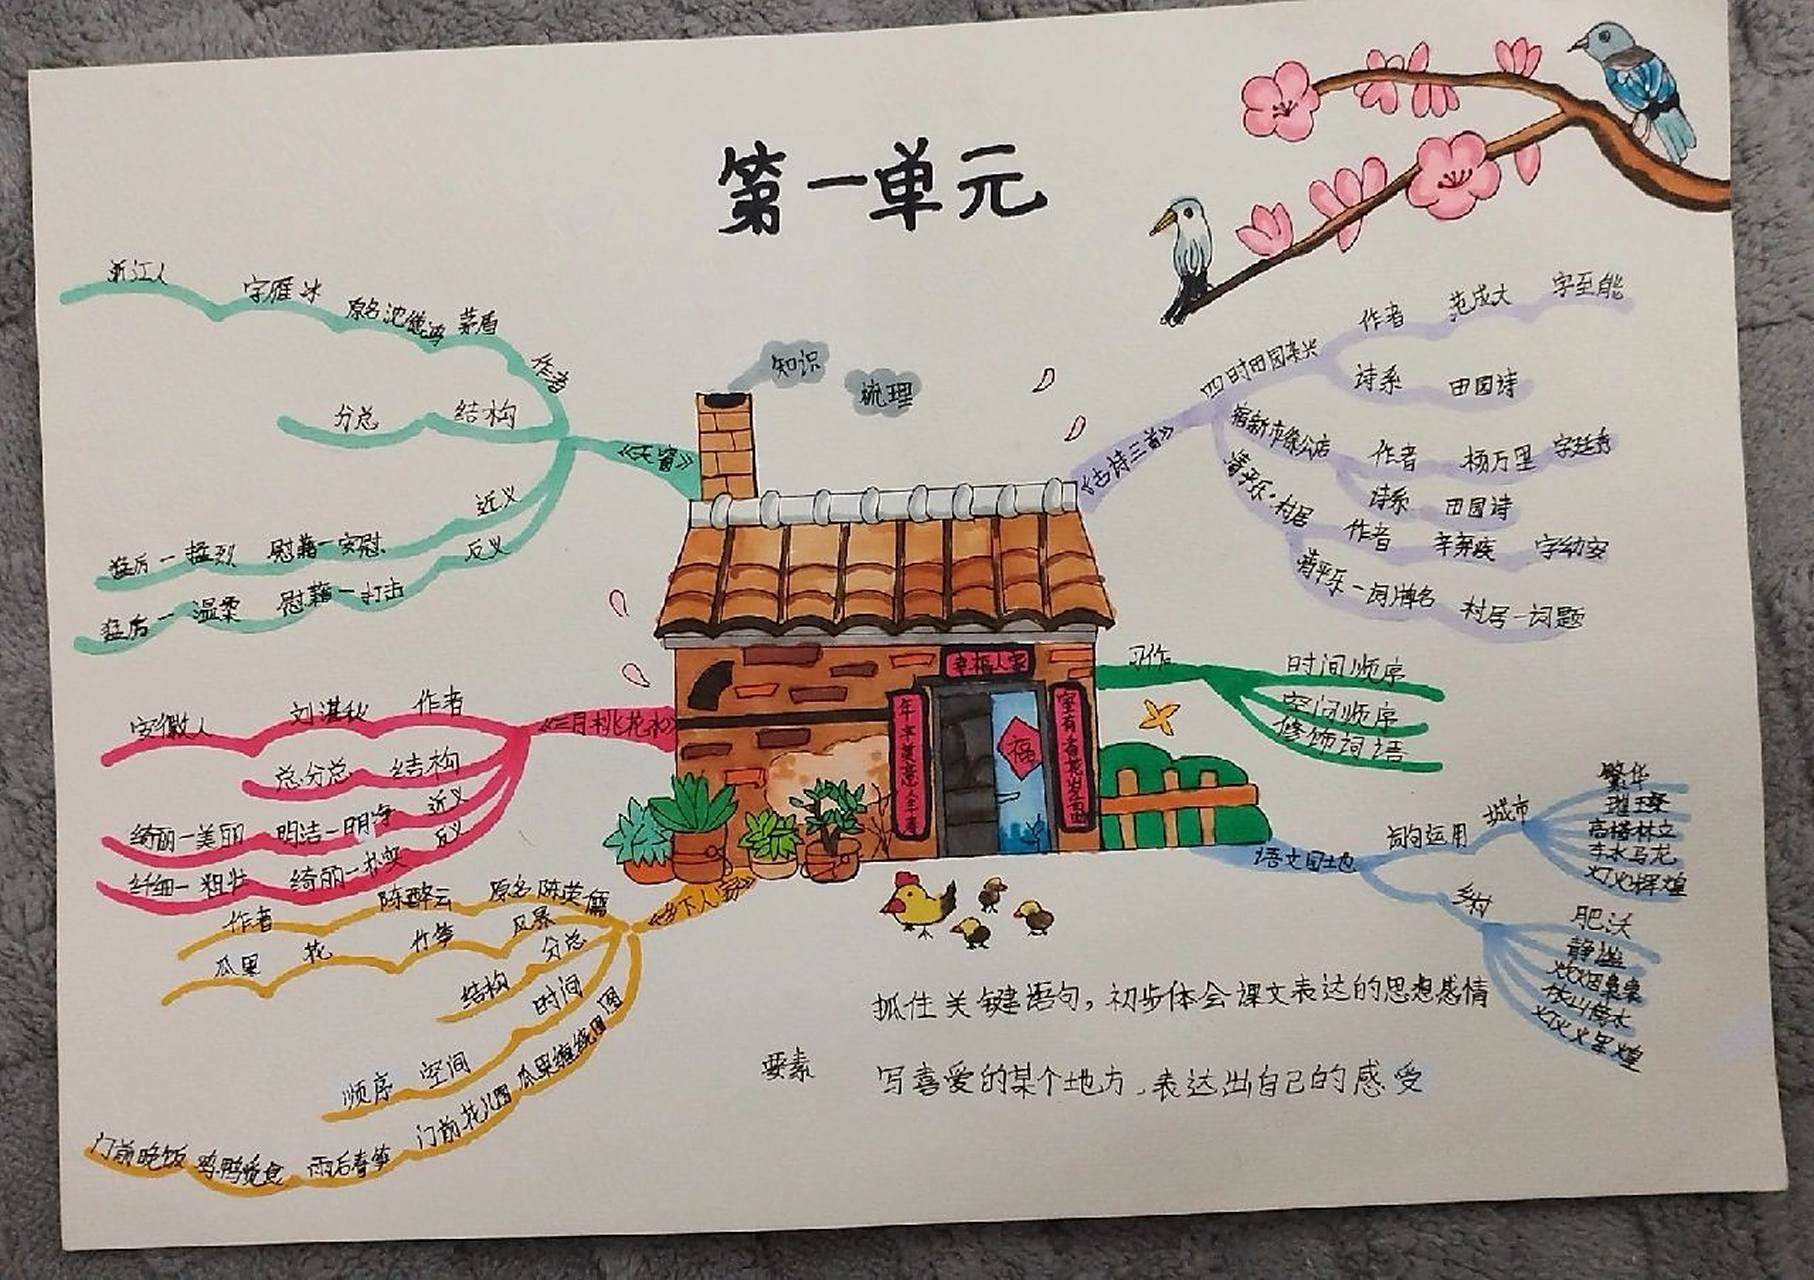 第一单元
知识
梳理
《天窗》
作者
茅盾
原名沈德鸿
字雁冰
浙江人
结构
分总
近义
慰藉一安慰
猛厉一猛烈
反义
慰藉一打击
猛厉一温柔
《三月桃花水》
作者
刘湛秋
安徽人
结构
总分总
近义
明洁一明净
绮丽一美丽
反义
绮丽一朴实
纤细一粗壮
《乡下人家》
原名陈英儒
陈醉云
作者
风景
竹笋
花
瓜果
分总
结构
时间
空间
顺序
瓜果缠绕图
门前花儿图
雨后春笋
鸡鸭觅食
门前晚饭
《古诗三首》
四时田园杂兴
作者 范成大 字至能
诗系 田园诗
宿新市徐公店
作者 杨万里 字廷秀
诗系 田园诗
清平乐·村居
作者 辛弃疾 字幼安
清平乐一词牌名 村居一词题
习作
时间顺序
空间顺序
修饰词语
语文园地
词句运用
城市
繁华
高楼林立
车水马龙
灯火辉煌
乡村
肥沃
静谧
炊烟袅袅
依山傍水
幸福人家
福
要素
抓住关键语句，初步体会课文表达的思想感情
写喜爱的某个地方，表达出自己的感受